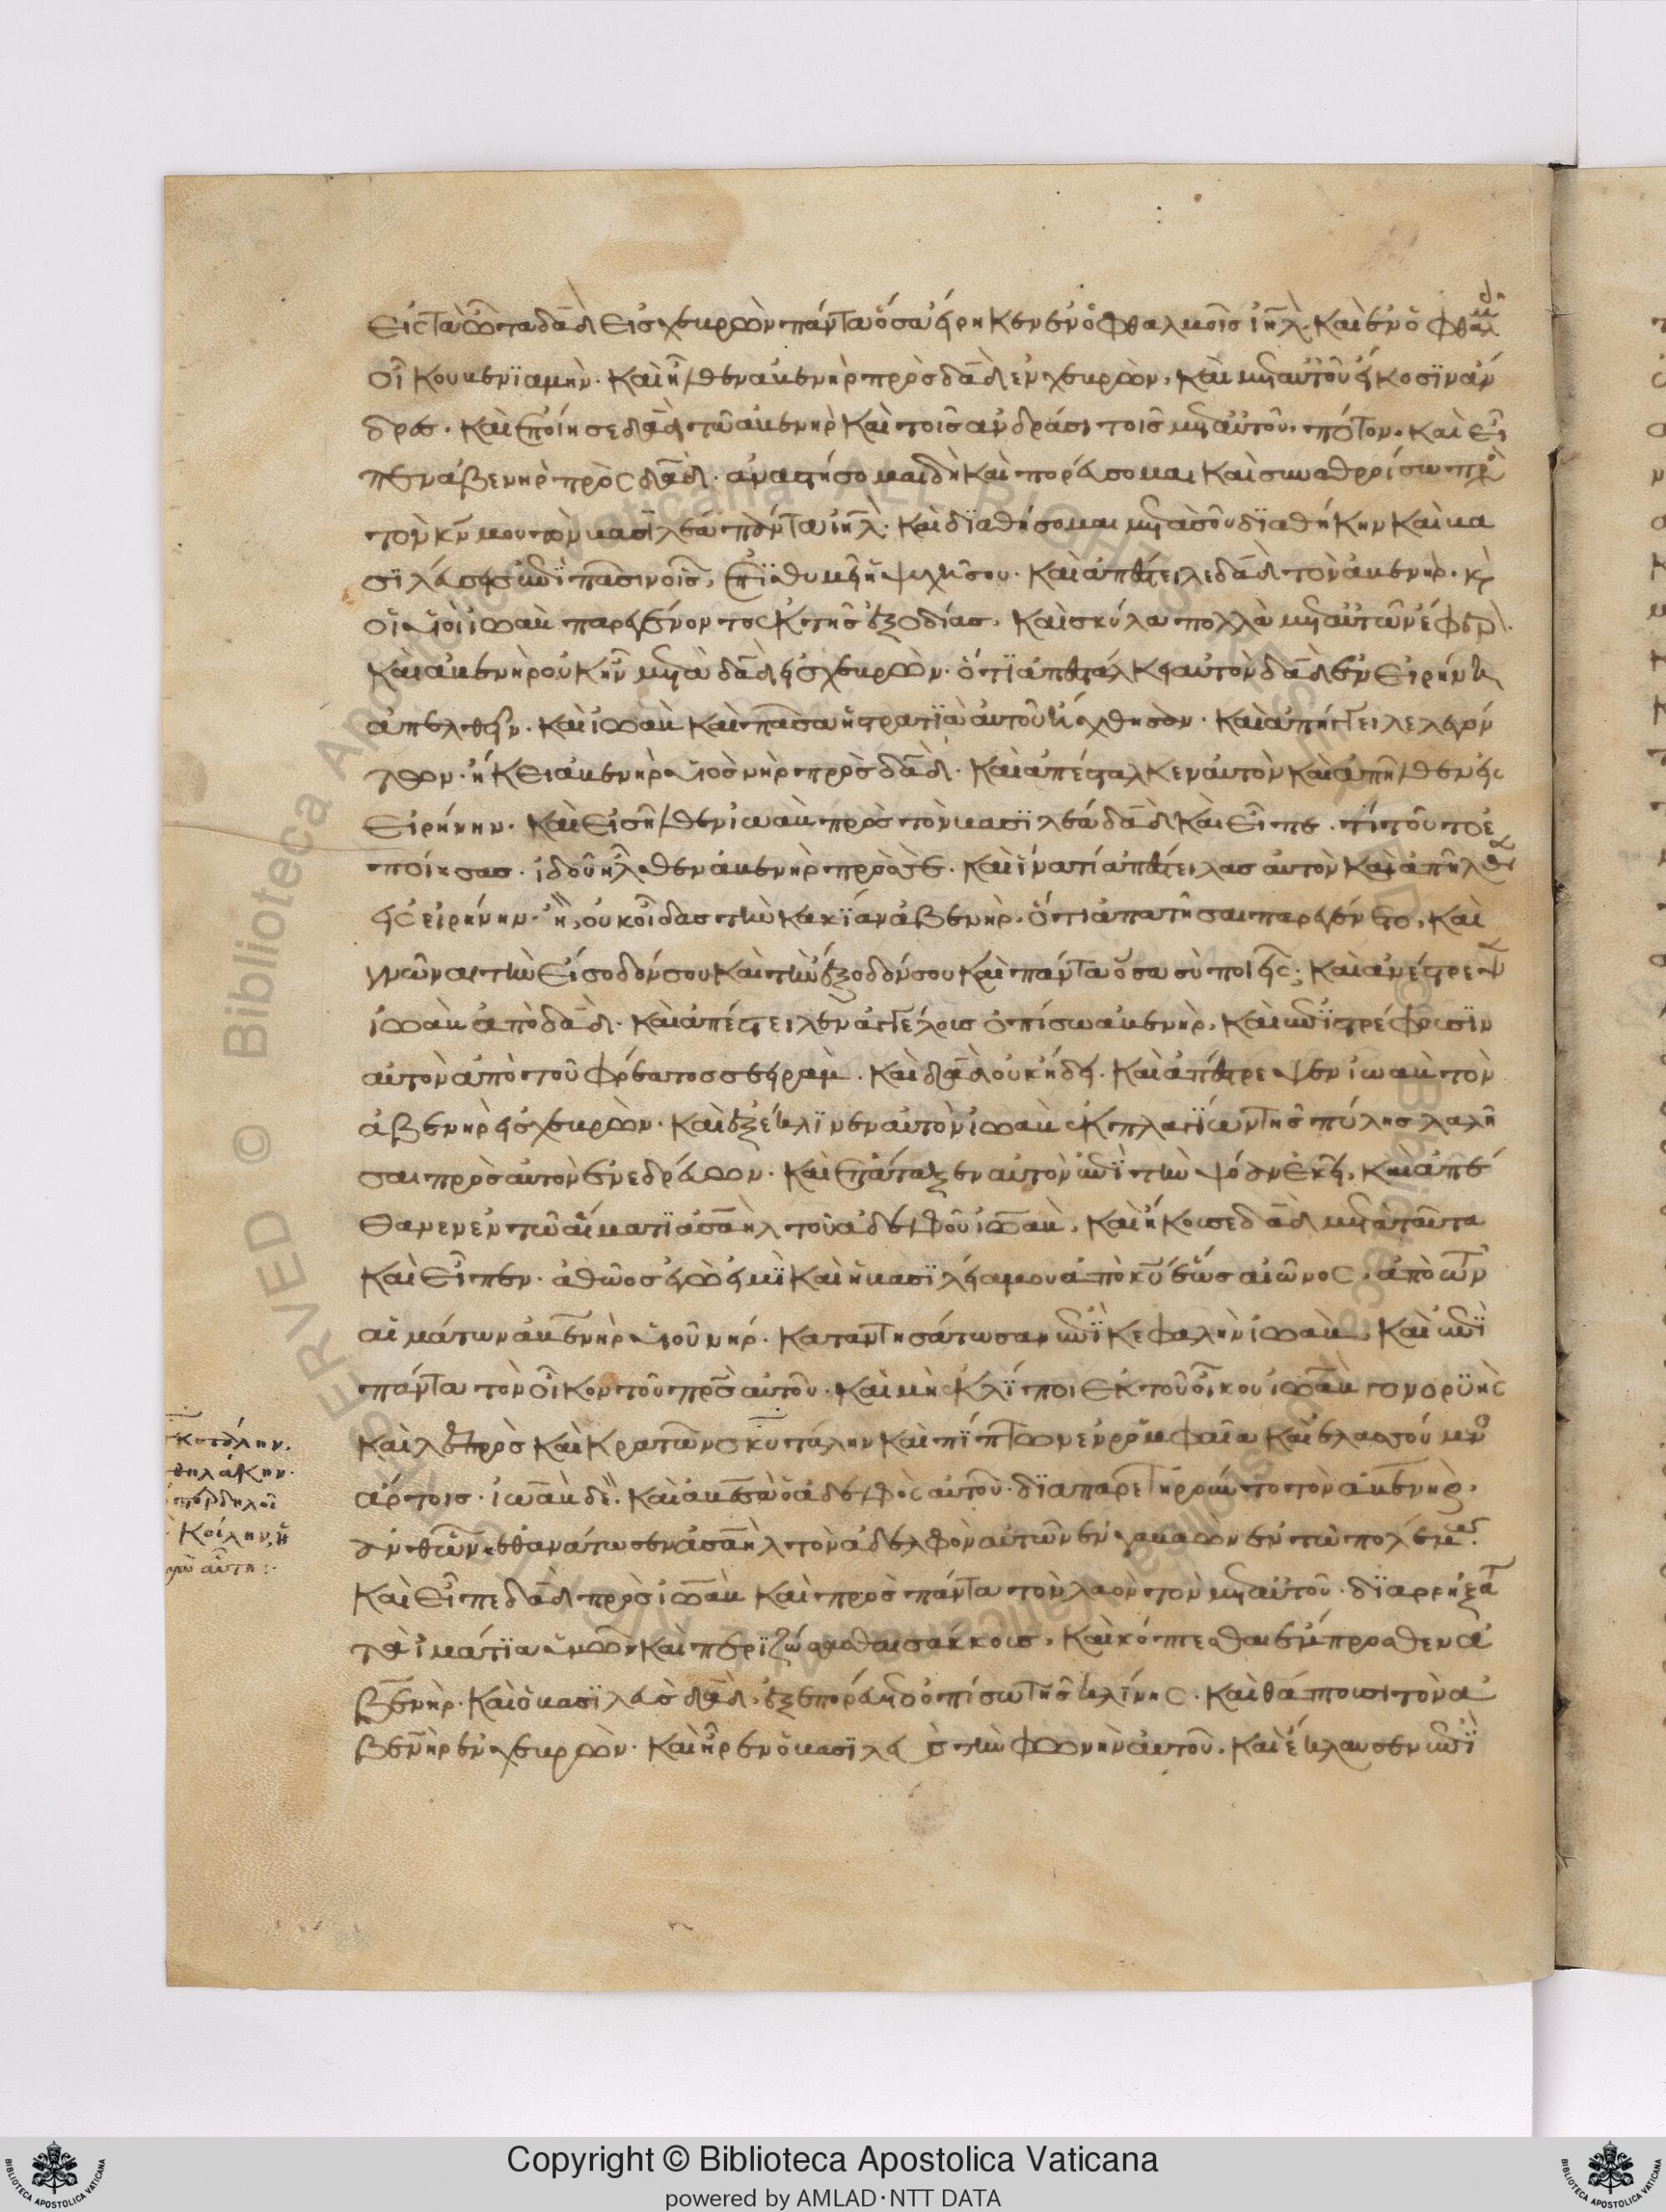 εἰς τὰ ὦτα δαδ εἰς χευρὼν πάντα ὅσα ἤρησκεν ἐν ὀφθαλμοῖς ἰηλ. καὶ ἐν ὀφθαλμ
οἴκου βενϊαμήν. καὶ ἦλθεν ἀβενὴρ πρὸς δαδ ἐν χευρών, καὶ μετ αὐτοῦ εἴκοσϊν ἄν
δρες. καὶ ἐποίησε δαδ τῶ ἀβενὴρ καὶ τοῖς ἀνδράσι τοῖς μετ αὐτοῦ πότον. καὶ εἶ
πεν ἀβενὴρ πρὸς δαδ. ἀναστήσομαι δὴ καὶ πορεύσομαι καὶ συναθροίσω πρὸ
τὸν κν μου τὸν βασιλέα πάντα ιηλ. καὶ δϊαθήσομαι μετὰ σοῦ δϊαθήκην καὶ βα
σϊλεύσεις ἐπὶ πᾶσιν οἷς ἐπϊθυμεῖ ἡ ψυχή σου. καὶ ἀπέστειλε δαδ τὸν ἀβενήρ. κ
οἱ υἱοὶ ἰωὰβ παρεγένοντο ἐκ τῆς ἐξοδίας, καὶ σκύλα πολλὰ μετ αὐτῶν ἔφερ.
καὶ ἀβενὴρ οὐκ ἦν μετὰ δαδ εἰς χευρών. ὅτϊ ἀπεστάλκει αὐτὸν δαδ ἐν εἰρήνη
ἀπελθεῖν. καὶ ἰωὰβ καὶ πᾶσα ἡ στρατϊὰ αὐτοῦ εἰσήχθησαν. καὶ ἀπήγγειλε λεγόν
των. ἥκει ἀβενὴρ υἱὸς νὴρ πρὸς δαδ. καὶ ἀπέσταλκεν αὐτὸν καὶ ἀπῆλθεν εἰς
εἰρήνην. καὶ εἰσῆλθεν ἰωὰβ πρὸς τὸν βασϊλέα δαδ καὶ εἶπε. τί τοῦτο ἐ
ποίησας. ἰδοὺ ἦλθεν ἀβενὴρ πρὸς σὲ. καὶ ἱνατί ἀπέστειλας αὐτὸν καὶ ἀπῆλθεν
εἰς εἰρήνην. ἢ οὐκ οἶδας τὴν κακίαν ἀβενήρ. ὅτι ἀπατῆσαι παρεγένετο, καὶ
γνῶναι τὴν εἴσοδόν σου καὶ τὴν ἔξοδόν σου καὶ πάντα ὅσα σὺ ποιεῖς; καὶ ἀνέστρεψ
ἰωὰβ ἀπὸ δαδ. καὶ ἀπέστειλεν ἀγγέλους ὀπίσω ἀβενήρ, καὶ ἐπϊστρέφουσϊν
αὐτὸν ἀπὸ τοῦ φρέατος σεειράμ. καὶ δαδ οὐκ ἤδει. καὶ ἀπέστρεψεν ἰωὰβ τὸν
ἀβενὴρ εἰς χευρών. καὶ ἐξέκλϊνεν αὐτὸν ἰωὰβ ἐκ πλαγϊων τῆς πύλης λαλῆ
σαι πρὸς αὐτὸν ἐνεδρεύων. καὶ ἐπάταξεν αὐτὸν ἐπὶ τὴν ψόαν ἐκεῖ, καὶ ἀπέ
θανεν ἐν τῶ αἵματϊ ἀσαὴλ τοῦ ἀδελφοῦ ἰωάβ, καὶ ἤκουσε δαδ μετὰ ταῦτα
καὶ εἶπεν. ἀθῶος ἐγώ εἰμϊ καὶ ἡ βασϊλεία μου ἀπὸ κυ ἕως αἰῶνος, ἀπὸ τῶν
αἱμάτων ἀβενὴρ υἱοῦ νήρ. καταντησάτωσαν ἐπὶ κεφαλὴν ἰωάβ, καὶ ἐπὶ
πάντα τὸν οἶκον τοῦ πρς αὐτοῦ. καὶ μὴ ἐκλίποι ἐκ τοῦ οἴκου ἰωὰβ γονορϋὴς
καὶ λεπρὸς καὶ κρατῶν σκυτάλην καὶ πίπτων ἐν ρομφαία καὶ ἐλασσούμενο
ἄρτοις. ἰωὰβ δὲ καὶ ἀβεσσὰ ὁ ἀδελφὸς αὐτοῦ δϊαπαρετηροῦντο τὸν ἀβενήρ,
ἀνθ ὧν ἐθανάτωσεν ἀσαὴλ τὸν ἀδελφὸν αὐτῶν ἐν γαβαὼν ἐν τῶ πολέμω.
καὶ εἶπε δαδ πρὸς ἰωὰβ καὶ πρὸς πάντα τὸν λαὸν τὸν μετ αὐτοῦ. δϊαρρήξατ
τὰ ἱμάτϊα ὑμῶν καὶ περϊζώσασθαι σάκκους, καὶ κόπτεσθαι ἔμπροσθεν ἀ
βενήρ. καὶ ὁ βασϊλεὺς δαδ, ἐξεπορεύετο ὀπίσω τῆς κλίνης. καὶ θάπτουσι τὸν ἀ
βενὴρ ἐν χευρών. καὶ ἦρεν ὁ βασϊλεὺς τὴν φωνὴν αὐτοῦ, καὶ ἔκλαυσεν ἐπὶ